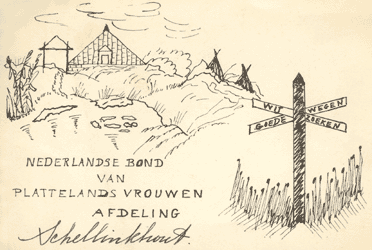 WIJ WEGEN
GOEDE ZOEKEN
NEDERLANDSE BOND
VAN
PLATTELANDS VROUWEN
AFDELING
Schellinkhout.